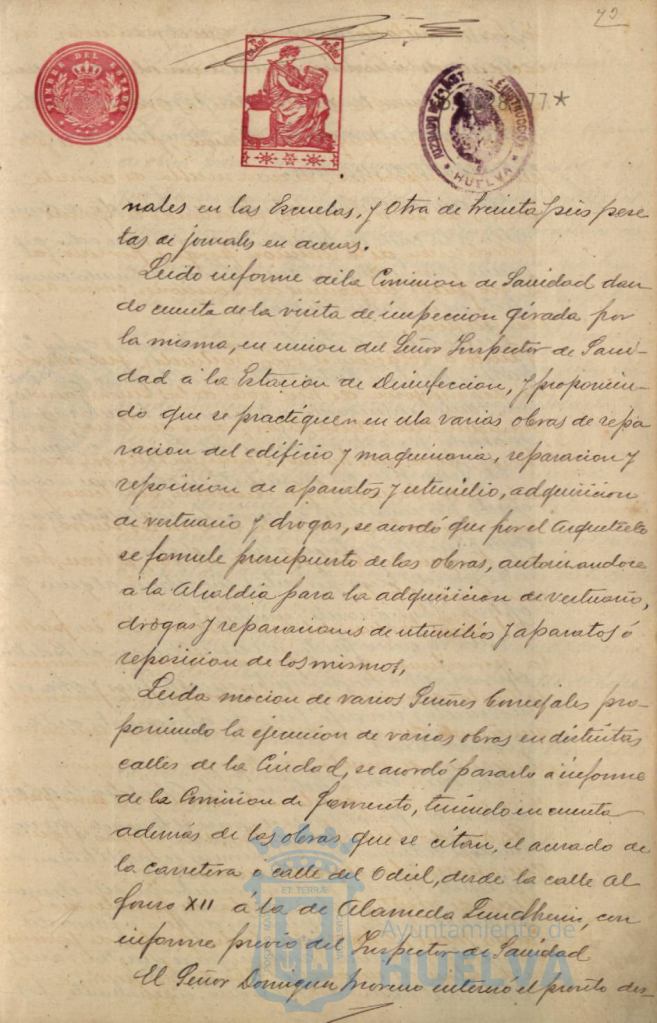 92
TIMBRE DEL ESTADO
JUZGADO DE INSTRUCCION
HUELVA
77.*
nales en las Escuelas, y otra de treinta y seis pese
tas de jornales en arenas.
Leido informe de la Comision de Sanidad dan
do cuenta de la visita de inspeccion girada por
la misma, en union del Señor Inspector de Sani-
dad á la Estacion de Desinfeccion, y proponien-
do que se practiquen en ella varias obras de repa
racion del edificio y maquinaria, reparacion y
reposicion de aparatos y utensilio, adquisicion
de vestuario y drogas, se acordó que por el Arquitecto
se formule presupuesto de las obras, autorizandose
á la Alcaldia para la adquisicion de vestuario,
drogas y reparaciones de utensilios y aparatos ó
reposicion de los mismos,
Leida mocion de varios Señores Concejales pro-
poniendo la ejecucion de varias obras en distintas
calles de la Ciudad, se acordó pasarla á informe
de la Comision de Fomento, teniendo en cuenta
además de las obras que se citan, el acerado de
la carretera ó calle del Odiel, desde la calle Al
fonso XII á la de Alameda Sundheim, con
informe previo del Inspector de Sanidad
El Señor Dominguez Moreno interesó el pronto des-
Ayuntamiento de
HUELVA